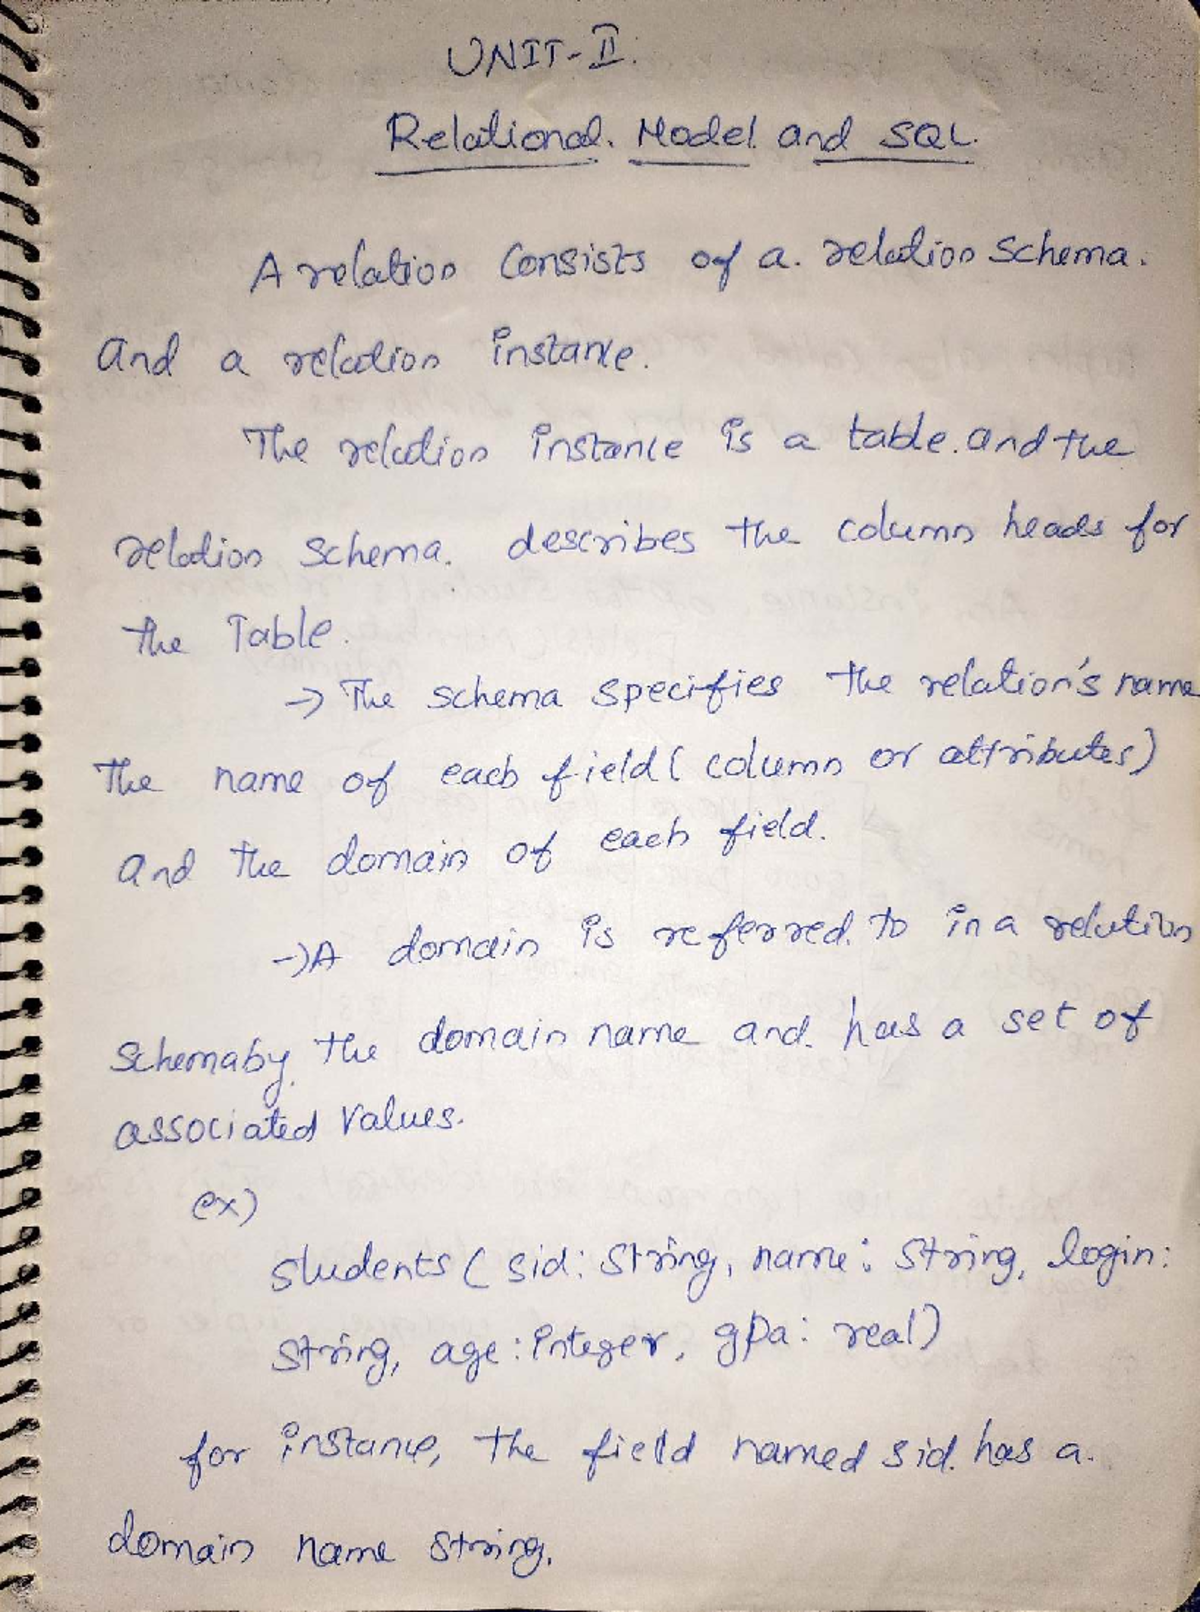 UNIT-II.
Relational. Model and SQL.
A relation Consists of a. relation Schema.
and a relation instance.
The relation instance is a table. and the
relation schema. describes the column heads for
the Table.
→ The schema specifies the relation's name
The name of each field ( column or attributes)
and the domain of each field.
→ A domain is referred. to in a relation
Schema by. the domain name and. has a set of
associated values.
ex)
students ( sid: string, name: string, login:
string, age: integer, gpa: real)
for instance, the field named sid. has a.
domain name string.